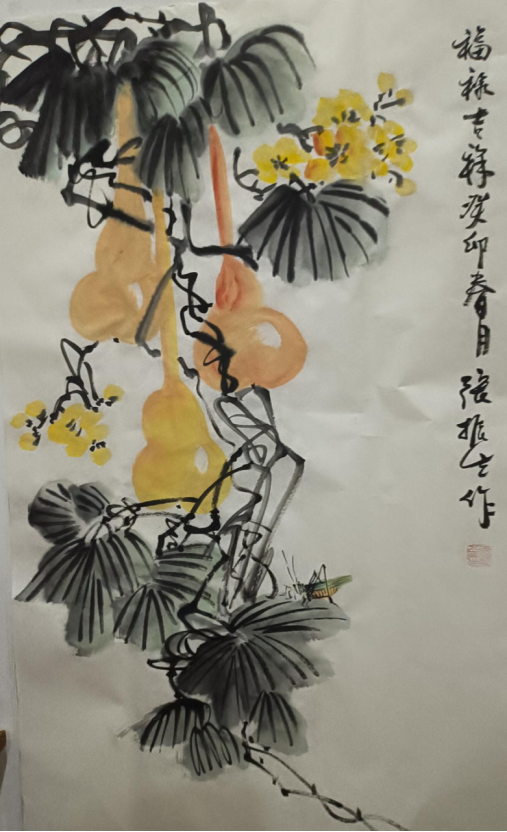 福禄吉祥癸卯春月张振生作